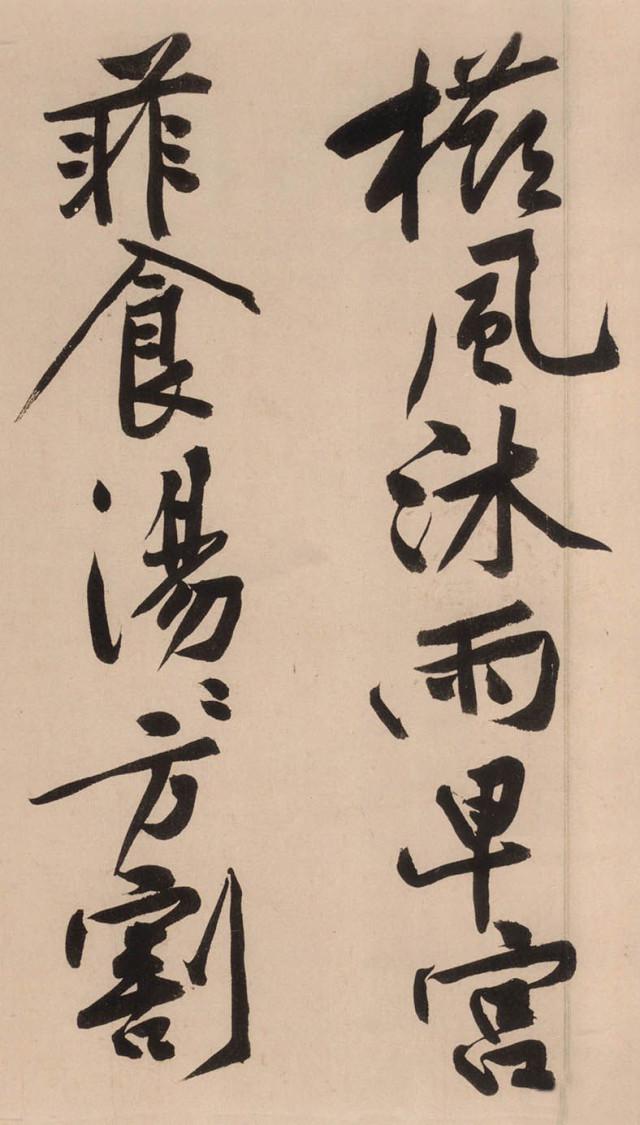 櫛風沐雨卑宮
菲食湯〻方割